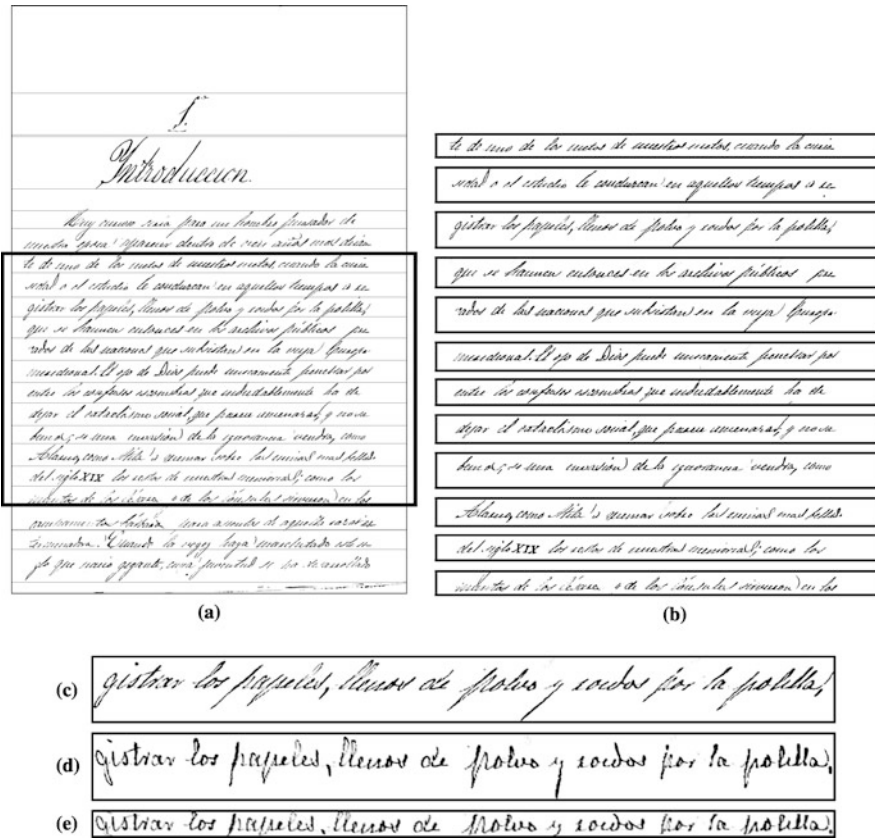 1.
Introduccion.
Muy curioso seria para un hombre pensador de
nuestra epoca aparecer dentro de cien años mas
te de uno de los nietos de nuestros nietos, cuando la curio
sidad o el estudio le conduzcan en aquellos tiempos a re
gistrar los papeles, llenos de polvo y roidos por la polilla,
que se hacinen entonces en los archivos públicos
de las naciones que subsistan en la vieja Europa
meridional. El ojo de Dios puede unicamente penetrar por
entre los confusos escombros que indudablemente ha de
dejar el cataclismo social, que parece amenazar, y no sa
bemos si una invasion de la ignorancia vendra, como
como Atila a quemar todos los
del siglo XIX los restos de nuestras memorias; como los
de los de los en los
para de aquella
Cuando la haya
gigante, cuya juventud se ha desarrollado
(a)
te de uno de los nietos de nuestros nietos, cuando la curio
sidad o el estudio le conduzcan en aquellos tiempos a re
gistrar los papeles, llenos de polvo y roidos por la polilla,
que se hacinen entonces en los archivos públicos
de las naciones que subsistan en la vieja Europa
meridional. El ojo de Dios puede unicamente penetrar por
entre los confusos escombros que indudablemente ha de
dejar el cataclismo social, que parece amenazar, y no sa
bemos si una invasion de la ignorancia vendra, como
como Atila a quemar todos los
del siglo XIX los restos de nuestras memorias; como los
de los de los en los
(b)
(c) gistrar los papeles, llenos de polvo y roidos por la polilla,
(d) gistrar los papeles, llenos de polvo y roidos por la polilla,
(e) gistrar los papeles, llenos de polvo y roidos por la polilla,